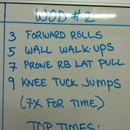 WOD #2
3 FORWARD ROLLS
5 WALL WALK UPS
7 PRONE RB LAT PULL
9 KNEE TUCK JUMPS
(7X FOR TIME)
TOP TIMES: